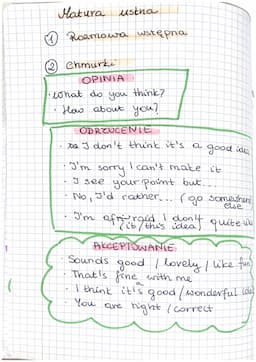 Matura ustna
① Rozmowa wstępna
② Chmurki
OPINIA
· What do you think?
· How about you?
ODRZUCENIE
· I don't think it's a good idea
· I'm sorry I can't make it
· I see your point but...
· No, I'd rather... (go somewhere
else
· I'm afraid I don't quite
(it/this idea)
AKCEPTOWANIE
· Sounds good / lovely / like fun
· That's fine with me
· I think it's good/wonderful idea
· You are right / correct